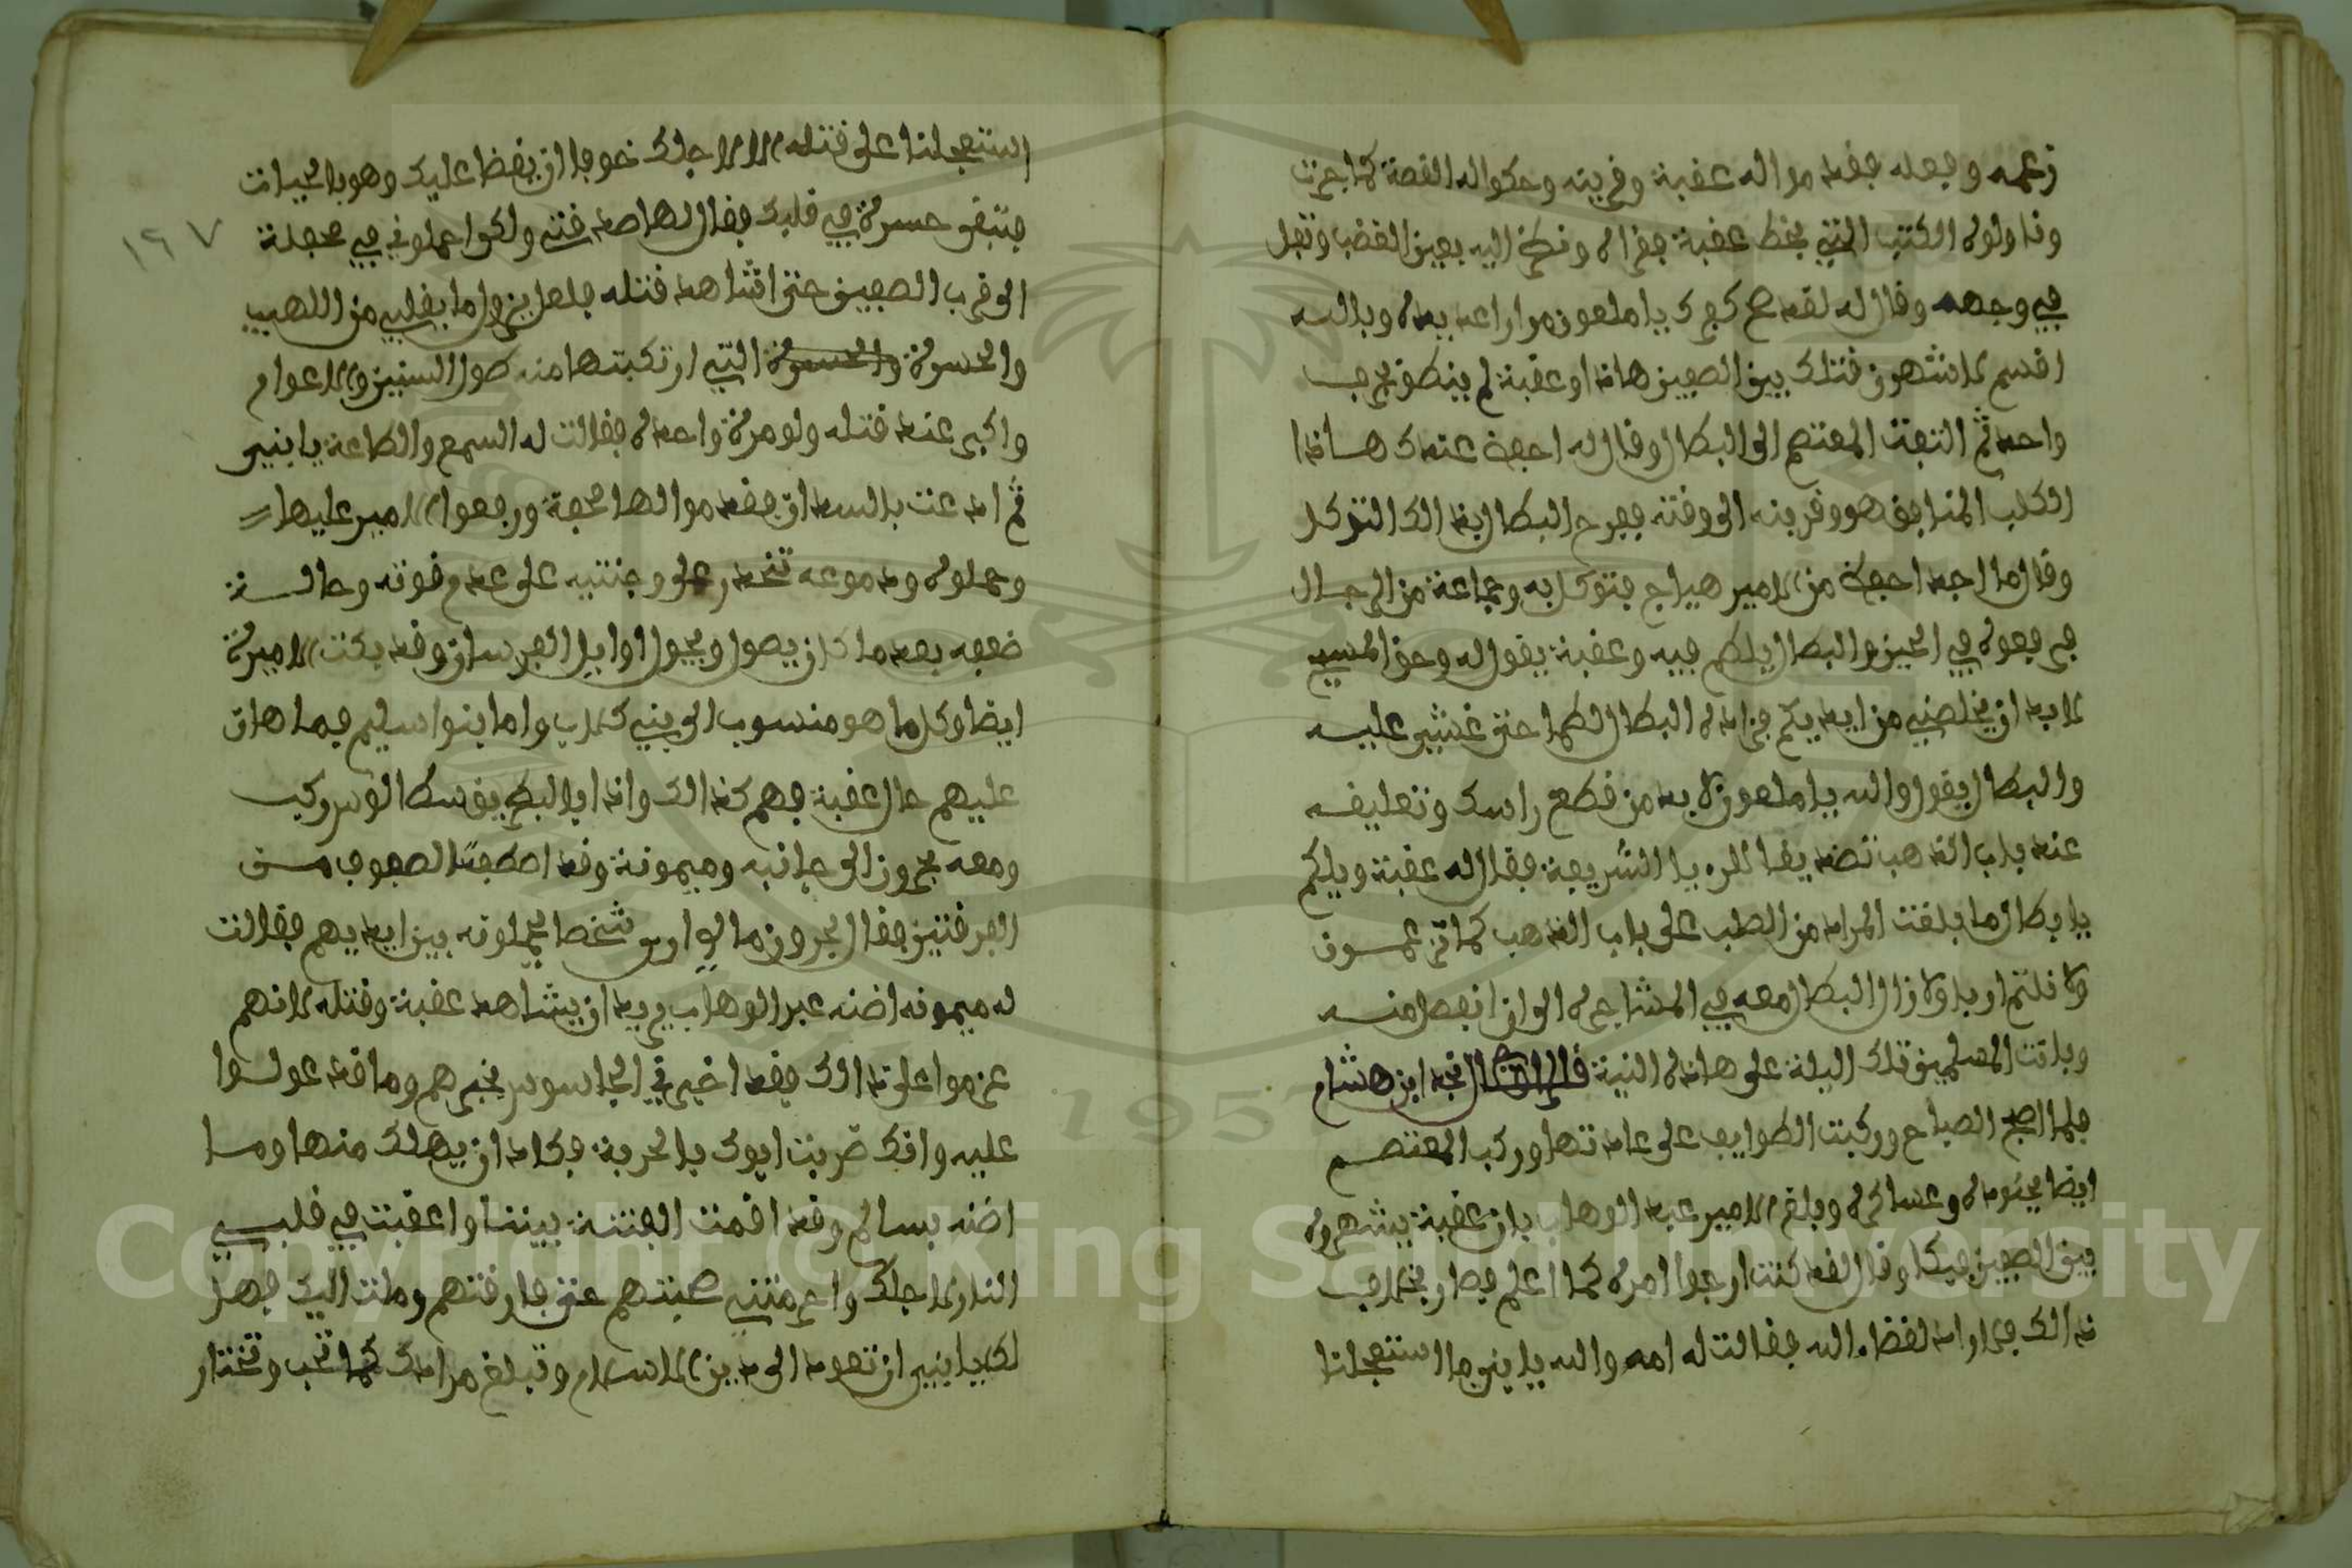 زعمه وفعله فقدموا له عقبة وقرينه وحكوا له القصة كما جرت
وناولوه الكتب التي بخط عقبة فقراه ونظر اليه بعين الغضب وتفل
في وجهه وقال له لقد صح كفرك يا ملعون مرارا عديده وبالله
اقسم لاشهرن قتلك بين الصفين هاذا وعقبة لم ينطق بحرف
واحد ثم التفت المعتصم الى البطال وقال له احفظ عندك هاذا
الكلب المنافق هو وقرينه الى وقته ففرح البطال بذالك التوكل
وقال ما اجد احفظ من الامير هياج فتوكل به وجماعة من الرجال
فرفعوه في الحين والبطال يلكم فيه وعقبة يقول له وحق المسيح
لابد ان يخلصني من ايديكم فزاده البطال لكما حتى غشي عليه
والبطال يقول والله يا ملعون لا بد من قطع راسك وتعليقه
عند باب الذهب فقال له عقبة ويلكم
يا بطال ما بلغت المراد من الصلب على باب الذهب كما تزعمون
ولا قلتم او بلا ولا زال البطال معه في المشاجره الى ان انفصل منه
وباتت المسلمين تلك اليلة على هاذه النية قال نجد ابن هشام
فلما اصبح الصباح وركبت الطوايف على عادتها وركب المعتصم
ايضا بجنوده وعساكره وبلغ الامير عبد الوهاب بان عقبة يشهروه
بين الصفين فبكا وقال لقد كنت ارجوا امره كما اعلم فصار بخلاف
ذالك فلا راد لقضاء الله فقالت له امه والله يا بني ما استعجلنا
استعجلنا على قتله الا لاجلك خوفا ان يقضا عليك وهو بالحيات
فتبقى حسرة في قلبك فقال لها صدقتي ولكن احملوني في محفلة
الى قرب الصفين حتى اشاهد قتله فلعل يزول ما بقلبي من اللهيب
والحسرة والحسرة التي ارتكبتها منه طول السنين والاعوام
واكبر عند قتله ولو مرة واحده فقالت له السمع والطاعة يا بني
ثم ادعت بالسدان فقدموا لها محفة ورفعوا الامير عليها
وحملوه ودموعه تنحدر على وجنتيه على عدم قوته وحالة
ضعفه بعد ما كان يصول ويجول اوايل الفرسان وقد بكت الاميرة
ايضا وكل ما هو منسوب الى بني كلاب واما بنوا سليم فما هان
عليهم حال عقبة فهم كذالك واذا بالبطريق سكالوس ركب
ومعه بحرون الى جانبه وميمونة وقد اصطفت الصفوف من
الفرقتين فقال بحرون مالي ارى شخصا يحملونه بين ايديهم فقالت
له ميمونه اضنه عبد الوهاب يريد ان يشاهد عقبة وقتله لانهم
عزموا على ذالك فقد اخبرني الجاسوس بخبرهم وما قد عولوا
عليه وانك ضربت ابوك بالحربة فكاد ان يهلك منها وما
اضنه بسالم وقد اقمت الفتنة بيننا واعقبت في قلبي
النار لاجلك واحرمتني صحبتهم حتى فارقتهم وملت اليك فهل
لك يا بني ان تعود الى دين الاسلام وتبلغ مرادك كما تحب وتختار
١٦٧